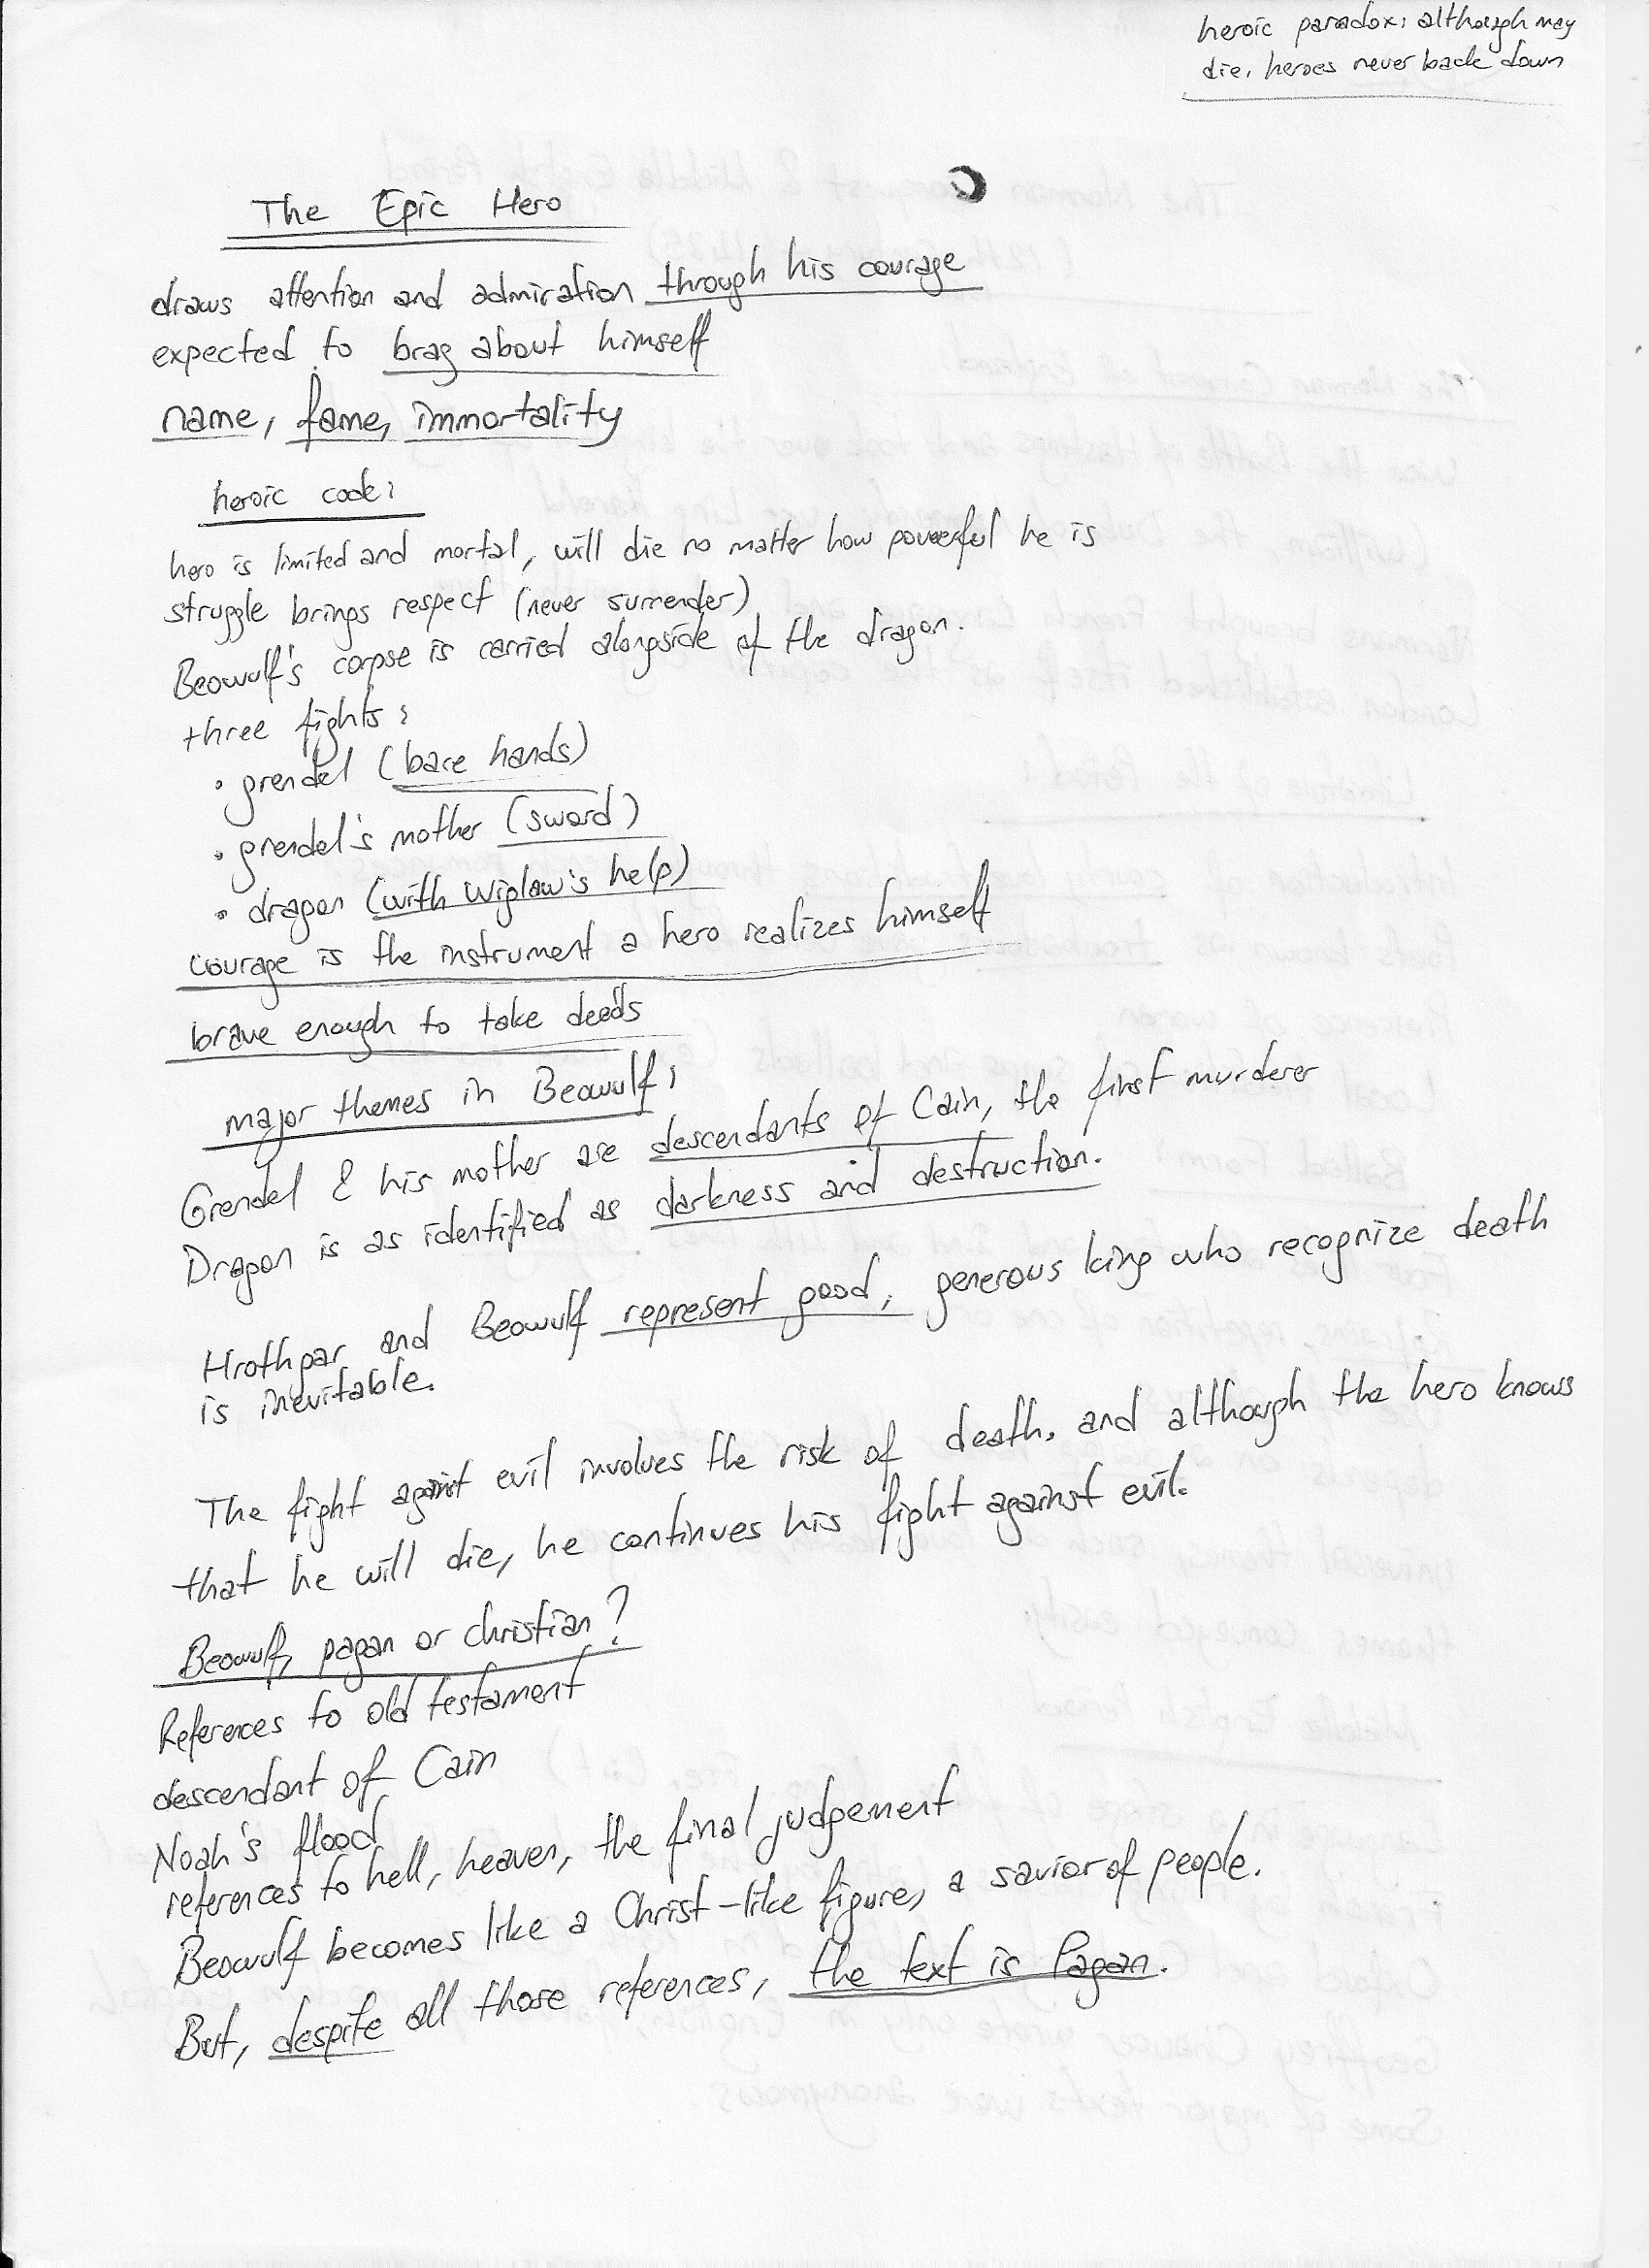 heroic paradox: although may
die, heroes never back down
The Epic Hero
draws attention and admiration through his courage
expected to brag about himself
name, fame, immortality
heroic code:
hero is limited and mortal, will die no matter how powerful he is
struggle brings respect (never surrender)
Beowulf's corpse is carried alongside of the dragon.
three fights:
• grendel (bare hands)
• grendel's mother (sword)
• dragon (with Wiglaw's help)
courage is the instrument a hero realizes himself
brave enough to take deeds
major themes in Beowulf:
Grendel & his mother are descendants of Cain, the first murderer
Dragon is as identified as darkness and destruction.
Hrothgar and Beowulf represent good, generous king who recognize death
is inevitable.
The fight against evil involves the risk of death, and although the hero knows
that he will die, he continues his fight against evil.
Beowulf, pagan or christian?
References to old testament
descendant of Cain
Noah's flood
references to hell, heaven, the final judgement
Beowulf becomes like a Christ-like figure, a savior of people.
But, despite all those references, the text is Pagan.